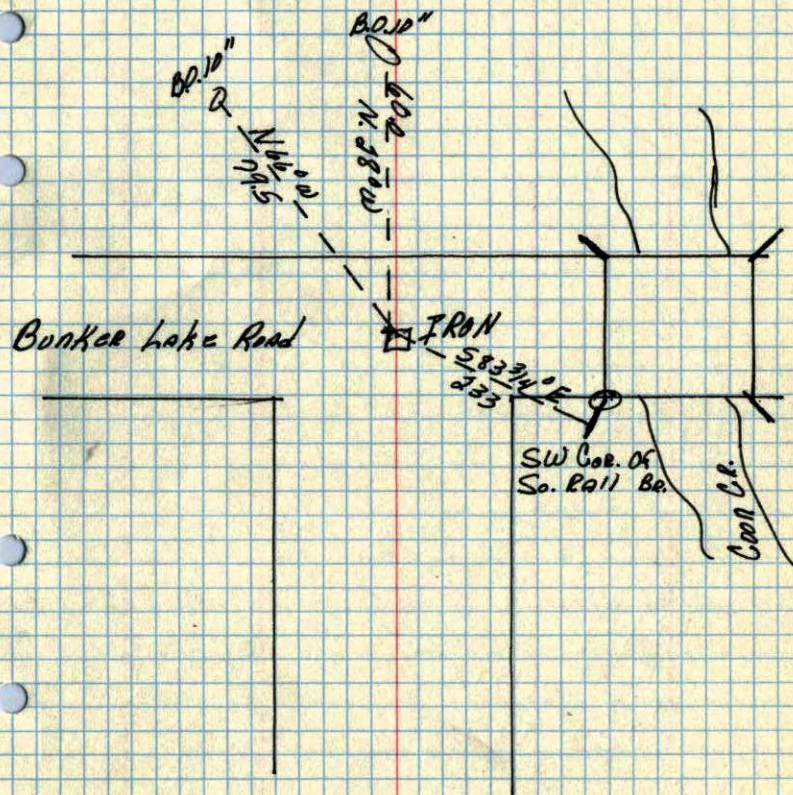 B.O. 10"
B.O. 10"
N 66° W
59.5
60.2
N. 28° W
Bunker Lake Road
IRON
S 83 3/4° E
233
SW Cor. of
So. Rail Br.
Coon Cr.